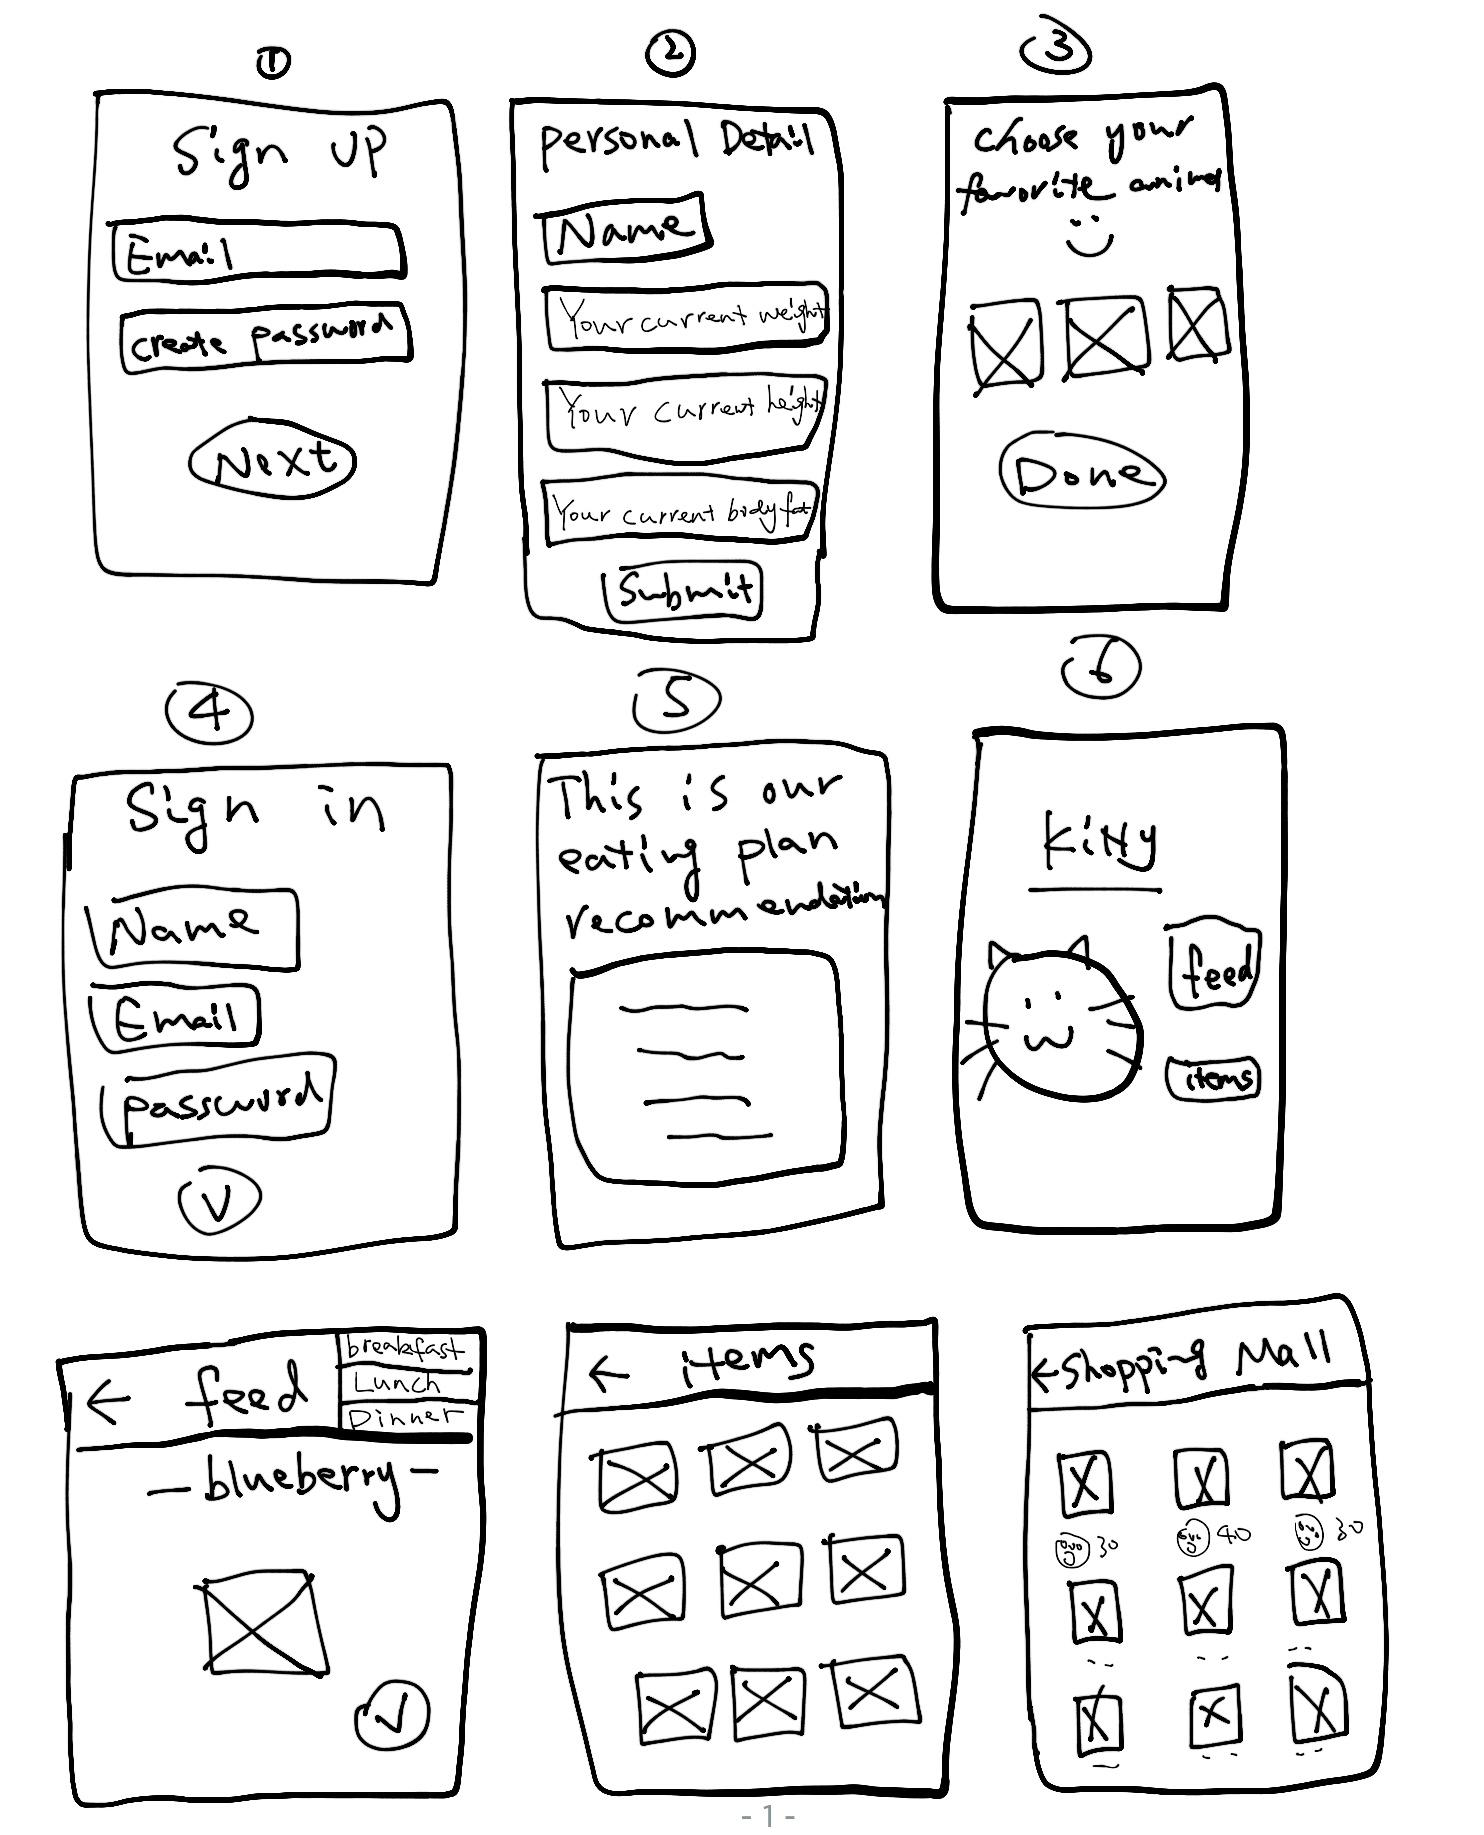 1
Sign UP
Email
create password
Next
2
personal Detail
Name
Your current weight
Your current height
Your current body fat
Submit
3
choose your
favorite animal
Done
4
Sign in
Name
Email
password
V
5
This is our
eating plan
recommendation
6
Kitty
feed
items
← feed
breakfast
Lunch
Dinner
- blueberry -
← items
← Shopping Mall
30 40 30
- 1 -